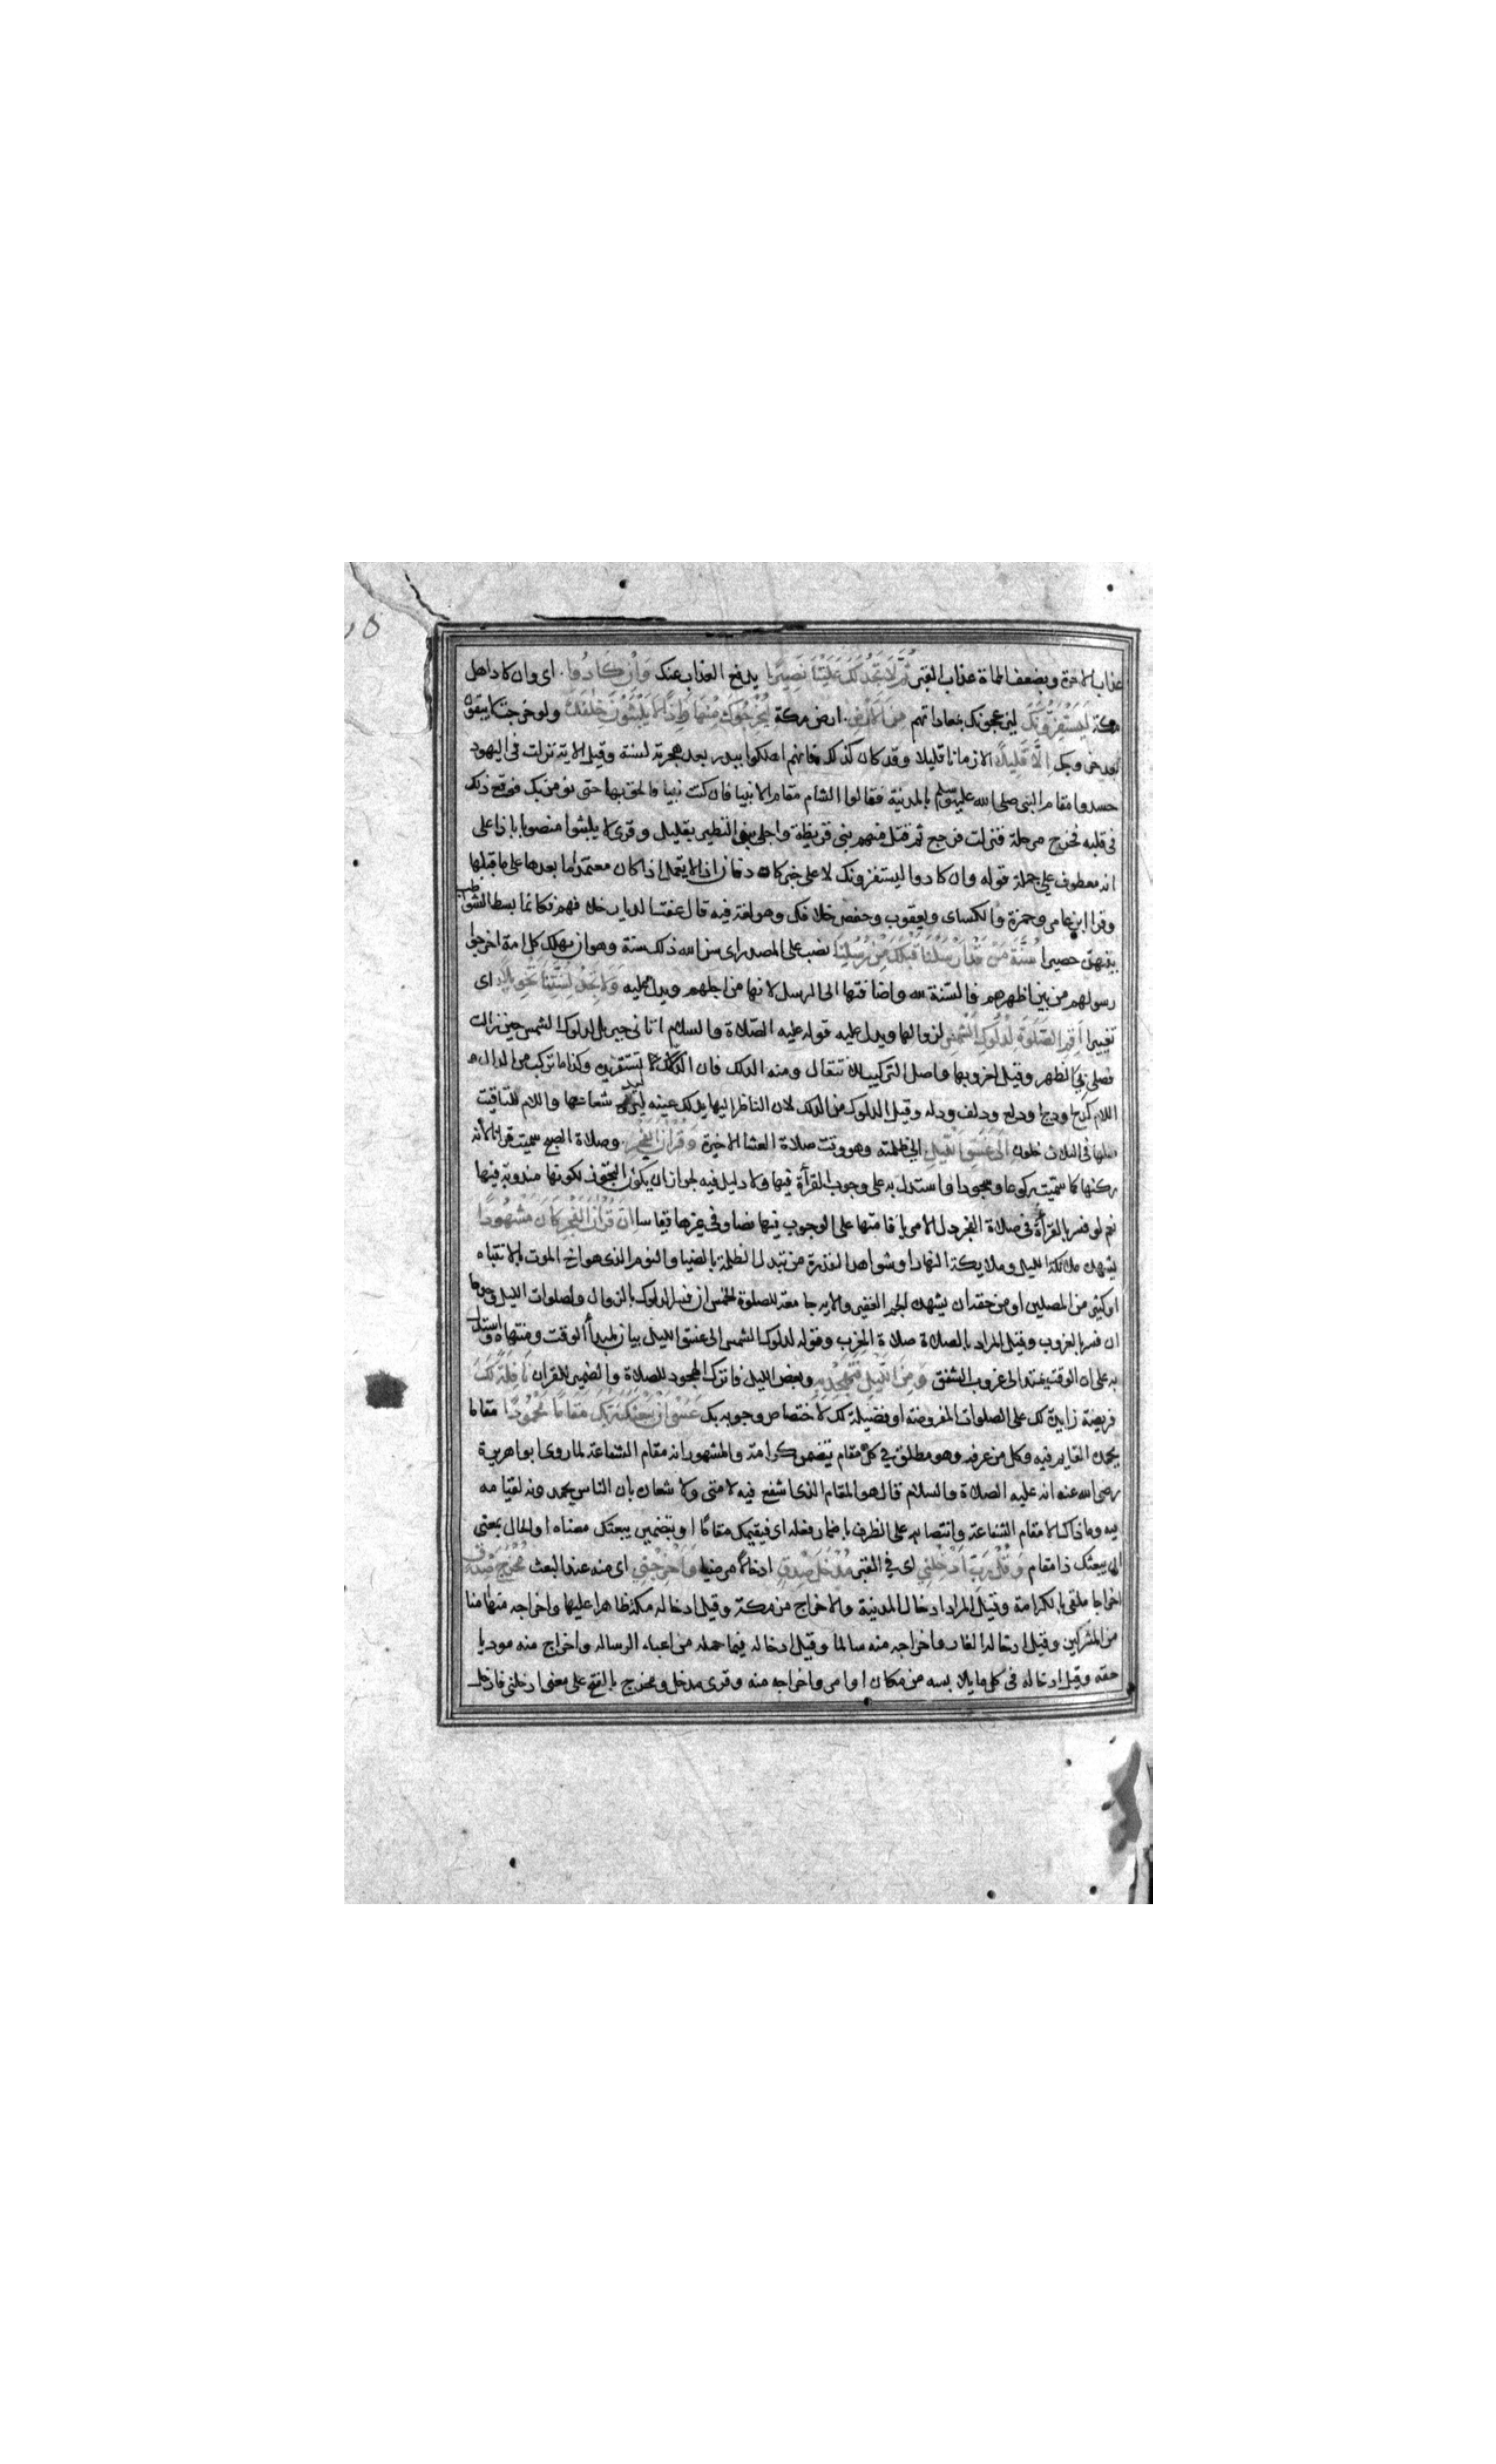 عذاب الاخرة وبضعف الماة عذاب القبر ثُمَّ لَا تَجِدُ لَكَ عَلَيْنَا نَصِيرًا يدفع العذاب عنك وَاِنْ كَادُوا اى وان كاد اهل
مكة لَيَسْتَفِزُّونَكَ ليزعجونك بمعاداتهم مِنَ الْاَرْضِ ارض مكة لِيُخْرِجُوكَ مِنْهَا وَاِذًا لَا يَلْبَثُونَ خِلَافَكَ ولو خرجت لا يبقون
بعد خروجك اِلَّا قَلِيلًا الا زمانا قليلا وقد كان كذلك فانهم اهلكوا ببدر بعد هجرته لسنة وقيل الاية نزلت فى اليهود
حسدوا مقام النبى صلى الله عليه وسلم بالمدينة فقالوا الشام مقام الانبيا فان كنت نبيا فالحق بها حتى نومن بك فوقع ذلك
فى قلبه فخرج مرحلة فنزلت فرجع ثم قتل منهم بنى قريظة واجلى بنى النظير بقليل وقرى لا يلبثوا منصوبا باذا على
انه معطوف على جملة قوله وان كادوا ليستفزونك لا على خبر كاد فان اذا لا يعمل اذا كان معتمدا ما بعدها على ما قبلها
وقرا ابن عامر وحمزة والكساى ويعقوب وحفص خلافك وهو لغة فيه قال عفت الديار خلافهم فكانما بسط الشواطب
بينهن حصيرا سُنَّةَ مَنْ قَدْ اَرْسَلْنَا قَبْلَكَ مِنْ رُسُلِنَا نصب على المصدر اى سن الله ذلك سنة وهو ان يهلك كل امة اخرجوا
رسولهم من بين اظهرهم فالسنة لله واضافتها الى الرسل لانها من اجلهم ويدل عليه وَلَا تَجِدُ لِسُنَّتِنَا تَحْوِيلًا اى
تغييرا اَقِمِ الصَّلٰوةَ لِدُلُوكِ الشَّمْسِ لزوالها ويدل عليه قوله عليه الصلاة والسلام اتانى جبريل لدلوك الشمس حين زالت
فصلى بى الظهر وقيل لغروبها واصل التركيب للانتقال ومنه الدلك فان الدلك لا تستقر يده وكذا ما تركب من الدال و
اللام كدلج ودلح ودلع ودلف ودله وقيل الدلوك من الدلك لان الناظر اليها يدلك عينه ليدفع شعاعها واللام للتاقيت
مثلها فى لثلاث خلون اِلٰى غَسَقِ الَّيْلِ الى ظلمته وهو وقت صلاة العشا الاخيرة وَقُرْاٰنَ الْفَجْرِ وصلاة الصبح سميت قرانا لانه
ركنها كما سميت ركوعا وسجودا واستدل به على وجوب القرأة فيها ولا دليل فيه لجواز ان يكون التجوز لكونها مندوبة فيها
نعم لو فسر بالقرأة فى صلاة الفجر دل الامر باقامتها على الوجوب فيها نصا وفى غيرها قياسا اِنَّ قُرْاٰنَ الْفَجْرِ كَانَ مَشْهُودًا
يشهده ملائكة الليل وملايكة النهار او شواهد القدرة من تبدل الظلمة بالضيا والنوم الذى هو اخ الموت بالانتباه
او كثير من المصلين او من حقه ان يشهده الجم الغفير والاية جامعة للصلوة الخمس ان فسر الدلوك بالزوال ولصلوات الليل وحدها
ان فسر بالغروب وقيل المراد بالصلاة صلاة المغرب وقوله لدلوك الشمس الى غسق الليل بيان لمبدأ الوقت ومنتهاه واستدل
به على ان الوقت يمتد الى غروب الشفق وَمِنَ الَّيْلِ فَتَهَجَّدْ بِهِ وبعض الليل فاترك الهجود للصلاة والضمير للقران نَافِلَةً لَكَ
فريضة زايدة لك على الصلوات المفروضة او فضيلة لك لاختصاص وجوبه بك عَسٰى اَنْ يَبْعَثَكَ رَبُّكَ مَقَامًا مَحْمُودًا مقاما
يحمده القايم فيه وكل من عرفه وهو مطلق فى كل مقام يتضمن كرامة والمشهور انه مقام الشفاعة لما روى ابو هريرة
رضى الله عنه انه عليه الصلاة والسلام قال هو المقام الذى اشفع فيه لامتى ولا شعاره بان الناس يحمدونه لقيامه
فيه وما ذاك الا مقام الشفاعة وانتصابه على الظرف باضمار فعله اى فيقيمك مقاما او بتضمين يبعثك معناه او الحال بمعنى
ان يبعثك ذا مقام وَقُلْ رَبِّ اَدْخِلْنِي اى فى القبر مُدْخَلَ صِدْقٍ ادخالا مرضيا وَاَخْرِجْنِي اى منه عند البعث مُخْرَجَ صِدْقٍ
اخراجا ملقى بالكرامة وقيل المراد ادخال المدينة والاخراج من مكة وقيل ادخاله مكة ظاهرا عليها واخراجه منها امنا
من المشركين وقيل ادخاله الغار واخراجه منه سالما وقيل ادخاله فيما حمله من اعباء الرسالة واخراج منه موديا
حقه وقيل ادخاله فى كل ما يلابسه من مكان او امر واخراجه منه وقرى مدخل ومخرج بالفتح على معنى ادخلنى فادخل